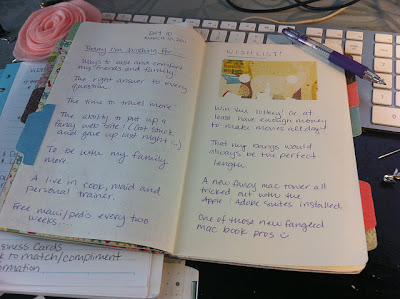 DAY 10
Today I'm wishing for....
Ways to assist and comfort my friends and family.
The right answer to every question.
The time to travel more.
The ability to put up a
fancy web site! (Got stuck
and gave up last night :()
To be with my family
more.
A live in cook, maid and
personal trainer.
Free mani/pedis every two
weeks....
WISHLIST!
Win the lottery! or at
least have enough money
to make movies all day!
That my bangs would
always be the perfect
length.
A new fancy mac tower all
tricked out with the
Apple / Adobe Suites installed.
One of those new fangled
mac book pros ☺
iness Cards
k to match/compliment
formation